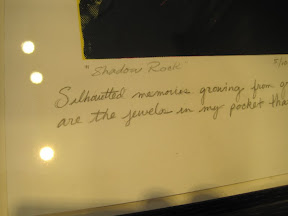 "Shadow Rock"
Silhoutted memories growing from
are the jewels in my pocket